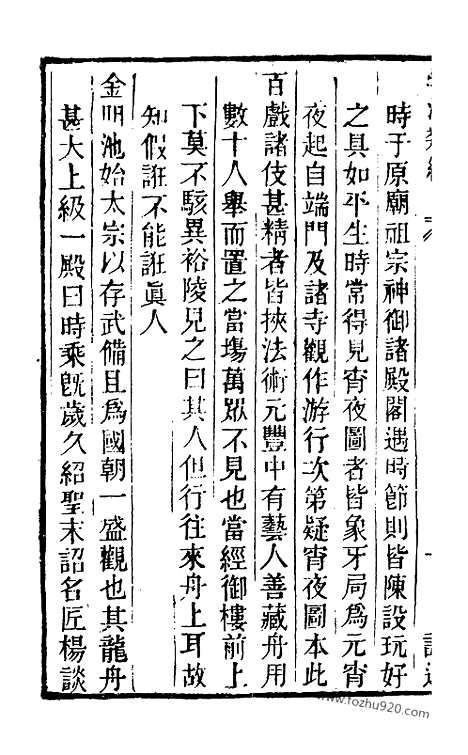 時于原廟祖宗神御諸殿閣遇時節則皆陳設玩好
之具如平生時常得見宵夜圖者皆象牙局爲元宵
夜起自端門及諸寺觀作游行次第疑宵夜圖本此
百戲諸伎甚精者皆挾法術元豐中有藝人善藏舟用
數十人舉而置之當塲萬眾不見也當經御樓前上
下莫不駭異裕陵見之曰其人但行往來舟上耳故
知假誑不能誑眞人
金明池始太宗以存武備且爲國朝一盛觀也其龍舟
甚大上級一殿曰時乘旣歲久紹聖末詔名匠楊談
www.fozhu920.com